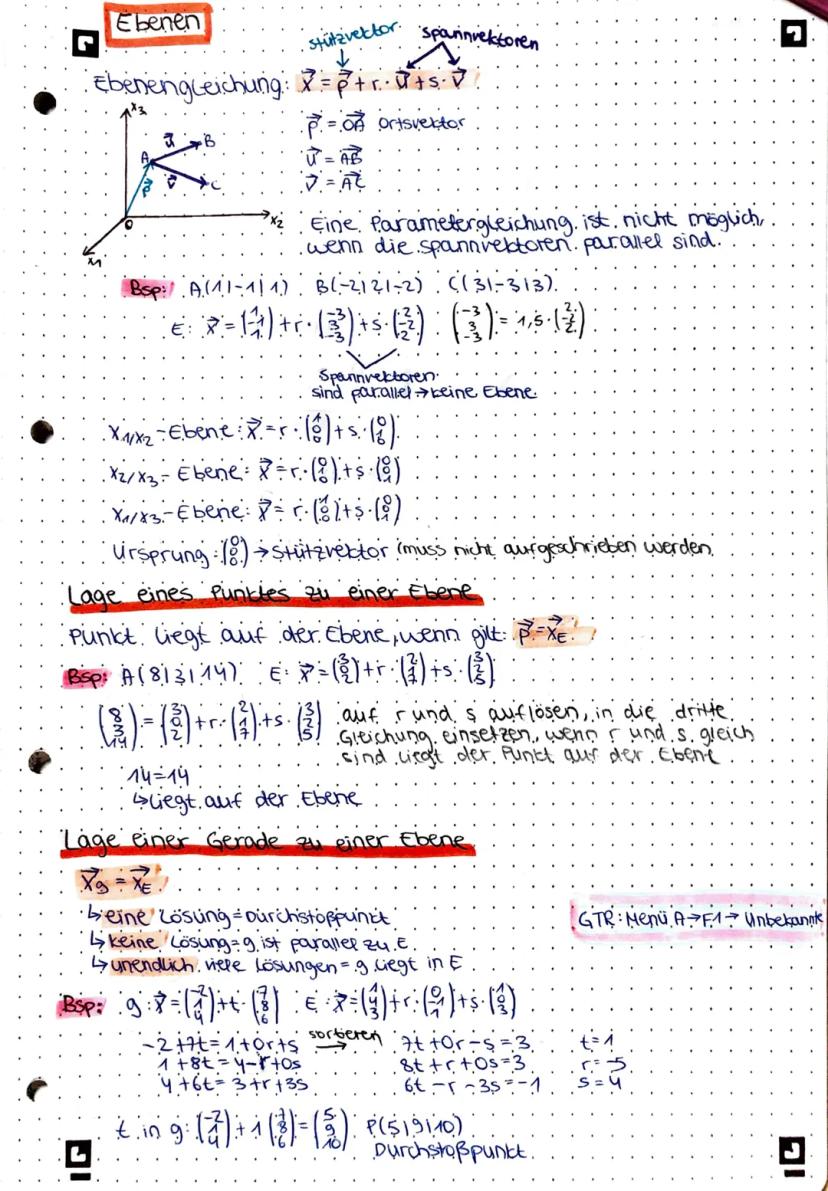 Ebenen
Stützvektor Spannvektoren
Ebenengleichung: x⃗ = p⃗ + r · u⃗ + s · v⃗
x₃
p⃗ = OA⃗ Ortsvektor
u⃗ B
A
u⃗ = AB⃗
p⃗ v⃗ C
v⃗ = AC⃗
0 x₂
x₁
Eine Parametergleichung ist nicht möglich,
wenn die Spannvektoren parallel sind.
Bsp: A(1|-1|1) B(-2|2|-2) C(3|-3|3)
E: x⃗ = (1 -1 1) + r · (-3 3 -3) + s · (2 -2 2) (-3 3 -3) = 1,5 · (2 -2 2)
Spannvektoren
sind parallel → keine Ebene
x₁/x₂-Ebene: x⃗ = r · (1 0 0) + s · (0 1 0)
x₂/x₃-Ebene: x⃗ = r · (0 1 0) + s · (0 0 1)
x₁/x₃-Ebene: x⃗ = r · (1 0 0) + s · (0 0 1)
Ursprung: (0 0 0) → Stützvektor (muss nicht aufgeschrieben werden
Lage eines Punktes zu einer Ebene
Punkt liegt auf der Ebene, wenn gilt: p⃗ = x⃗E
Bsp: A(8|3|14) E: x⃗ = (3 0 2) + r · (2 1 7) + s · (3 2 5)
(8 3 14) = (3 0 2) + r · (2 1 7) + s · (3 2 5) auf r und s auflösen, in die dritte
Gleichung einsetzen, wenn r und s gleich
sind liegt der Punkt auf der Ebene
14=14
↳ liegt auf der Ebene
Lage einer Gerade zu einer Ebene
x⃗g = x⃗E
↳ eine Lösung = Durchstoßpunkt
GTR: Menü A → F1 → Unbekannte
↳ keine Lösung = g ist parallel zu E
↳ unendlich viele Lösungen = g liegt in E
Bsp: g: x⃗ = (-2 1 4) + t · (7 8 6) E: x⃗ = (1 4 3) + r · (0 -1 1) + s · (1 0 3)
-2+7t = 1+0r+s sortieren → 7t+0r-s=3 t=1
1+8t = 4-r+0s 8t+r+0s=3 r=-5
4+6t = 3+r+3s 6t-r-3s=-1 s=4
t in g: (-2 1 4) + 1 (7 8 6) = (5 9 10) P(5|9|10)
Durchstoßpunkt